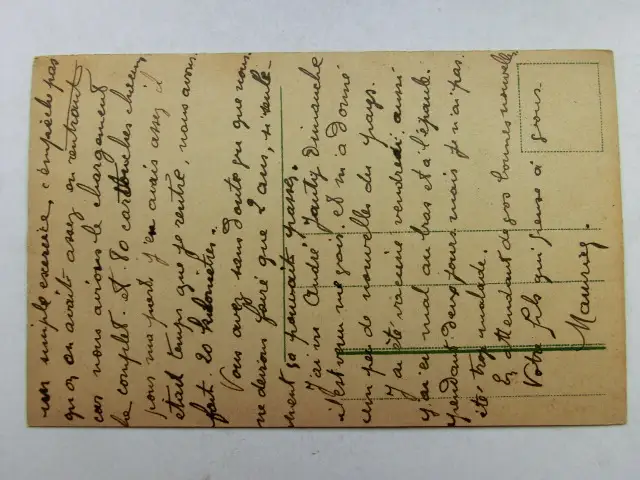 un simple exercice, n'empêche pas
qu'on en avait assez en rentrant
car nous avions le chargement
le complet. et 80 cartouches chacun,
pour ma part j'en avais assez il
était temps que je rentre, nous avons
fait 20 kilomètres.
Vous avez sans doute su que nous
ne devrons faire que 2 ans, si seule-
ment ça pouvait passer.
J'ai vu André Janty dimanche
il est venu me voir. et m'a donné
un peu de nouvelles du pays.
J'ai été vacciné vendredi aussi
j'ai eu mal au bras et à l'épaule.
pendant deux jours mais je n'ai pas
été trop malade.
En attendant de vos bonnes nouvelles
Votre fils qui pense à vous.
Maurice.